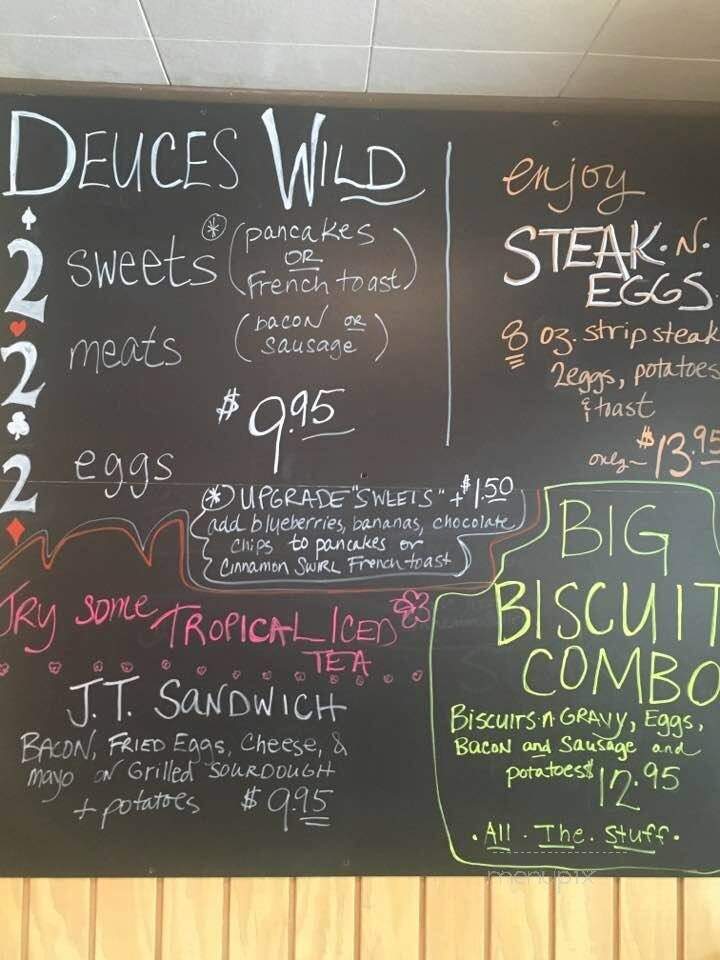 DEUCES WILD
2 sweets * (pancakes
OR
French toast)
2 meats (bacon OR
sausage)
$9.95
2 eggs
(*) UPGRADE "SWEETS" + $1.50
add blueberries, bananas, chocolate
chips to pancakes or
Cinnamon SWIRL French toast
enjoy
STEAK.N.
EGGS
8 oz. strip steak
2eggs, potatoes
& toast
only- $13.95
TRY some TROPICAL ICED
TEA
J.T. SANDWICH
BACON, FRIED Eggs, Cheese, &
mayo ON Grilled SOURDOUGH
+ potatoes $9.95
BIG
BISCUIT
COMBO
BISCUITS.n GRAVY, Eggs,
BACON and Sausage and
potatoes $12.95
. All . The . Stuff .
menupix